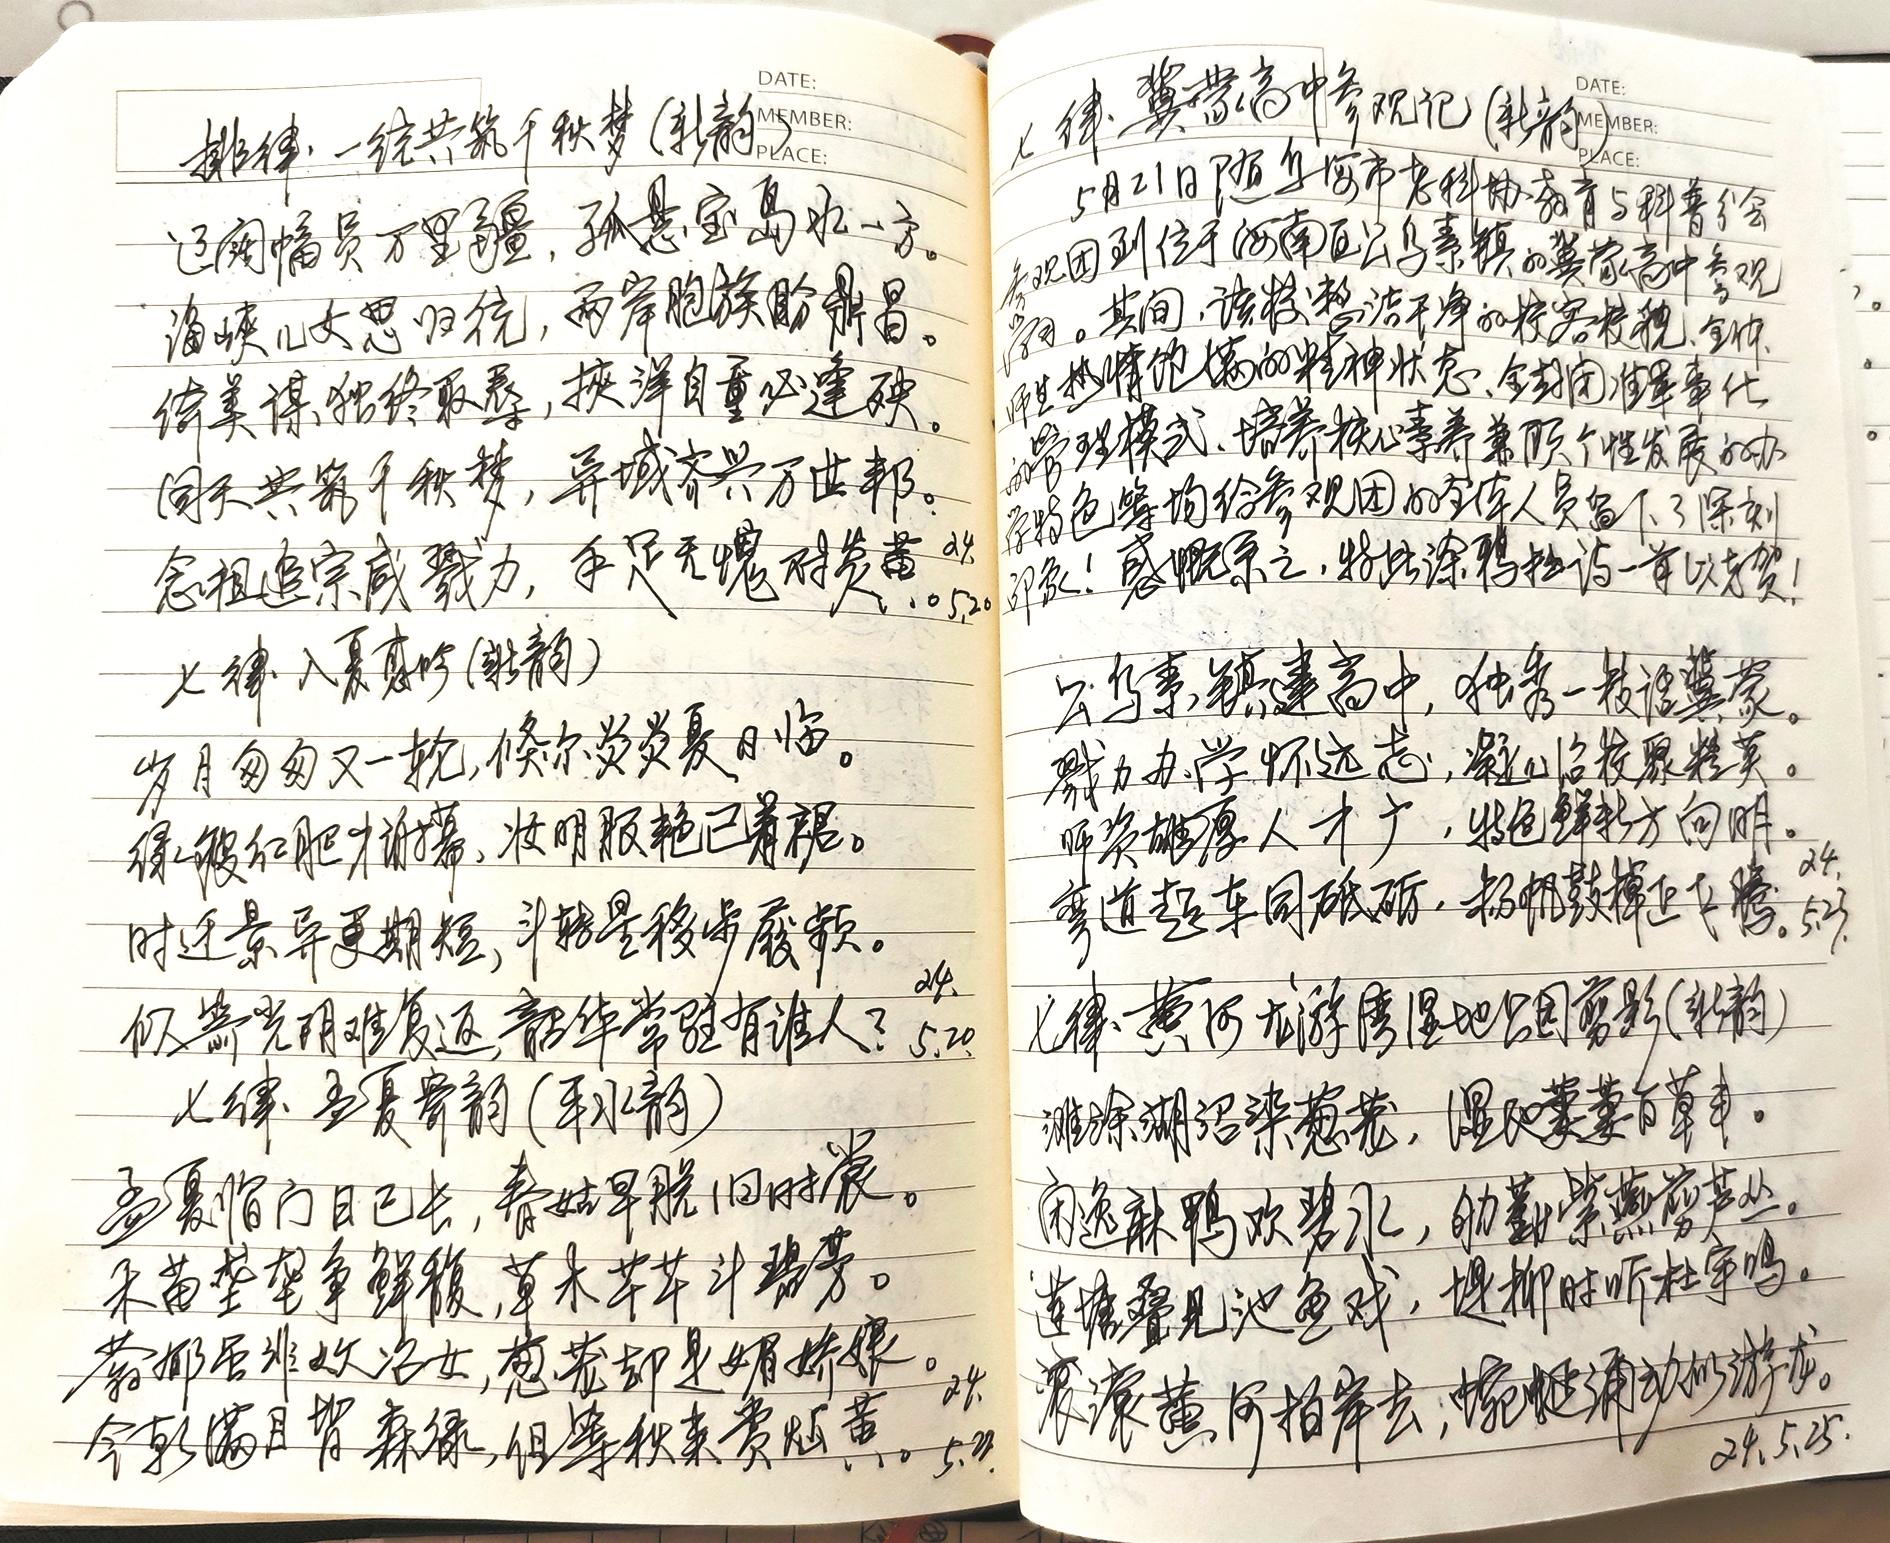 DATE:
MEMBER:
PLACE:
排律·一统共筑千秋梦(新韵)
辽阔幅员万里疆，孤悬宝岛水一方。
海峡儿女思归统，两岸胞族盼鼎昌。
倚美谋独终取辱，挟洋自重必逢殃。
同天共筑千秋梦，异域齐兴万世邦。
念祖追宗咸戮力，手足无愧对炎黄。 24.
5.20
七律·入夏感吟(新韵)
岁月匆匆又一轮，倏尔炎炎夏日临。
绿瘦红肥才谢幕，妆明服艳已着裙。
时迁景异更期短，斗转星移步履频。
似箭光阴难复返，韶华常驻有谁人？ 24.
5.20.
七律·孟夏寄韵(平水韵)
孟夏临门日已长，春姑早脱旧时裳。
禾苗垄垄争鲜馥，草木芊芊斗碧芳。
蓊郁岂非妆冶女，葱茏却是媚娇娘。
今朝满目皆森绿，但等秋来赏灿黄。 24.
DATE:
MEMBER:
PLACE:
七律·冀蒙高中参观记(新韵)
5月21日随乌海市老科协教育与科普分会
参观团到位于海南区公乌素镇的冀蒙高中参观
学习。其间，该校整洁干净的校容校貌、全体
师生热情饱满的精神状态、全封闭准军事化
的管理模式、培养核心素养兼顾个性发展的办
学特色等均给参观团的全体人员留下了深刻
印象！感慨系之，特此涂鸦拙诗一首以志贺！
公乌素镇建高中，独秀一枝话冀蒙。
戮力办学怀远志，凝心治校聚精英。
师资雄厚人才广，特色鲜新方向明。
弯道超车同砥砺，扬帆鼓棹正飞腾。 24.
5.23.
七律·黄河龙游湾湿地公园剪影(新韵)
滩涂湖沼染葱茏，湿地萋萋百草丰。
闲逸麻鸭欢碧水，勤紫燕剪芦丛。
莲塘叠见池鱼戏，堤柳时听杜宇鸣。
滚滚黄河拍岸去，蜿蜒涌动似游龙。
24.5.25.